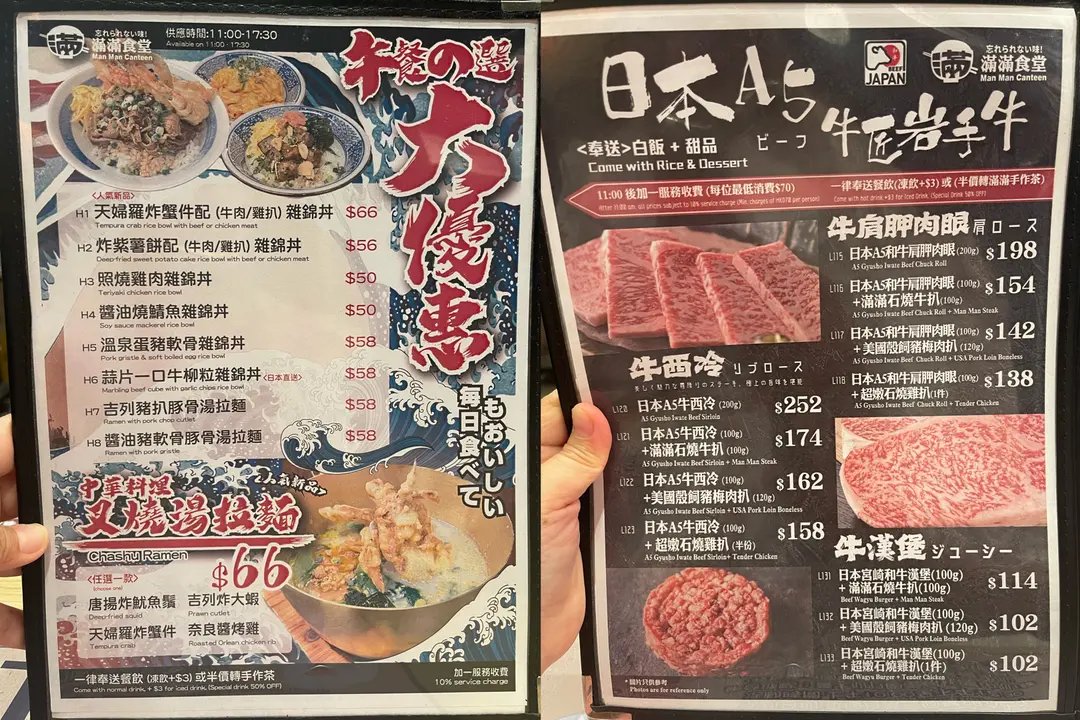 忘れられない味!
滿滿食堂
Man Man Canteen
供應時間:11:00-17:30
Available on 11:00 - 17:30
午餐の選
大優惠
<人氣新品>
H1 天婦羅炸蟹件配 (牛肉/雞扒) 雜錦丼 $66
Tempura crab rice bowl with beef or chicken meat
H2 炸紫薯餅配 (牛肉/雞扒) 雜錦丼 $56
Deep-fried sweet potato cake rice bowl with beef or chicken meat
H3 照燒雞肉雜錦丼 $50
Teriyaki chicken rice bowl
H4 醬油燒鯖魚雜錦丼 $50
Soy sauce mackerel rice bowl
H5 溫泉蛋豬軟骨雜錦丼 $58
Pork gristle & soft boiled egg rice bowl
H6 蒜片一口牛柳粒雜錦丼 <日本直送> $58
Marbling beef cube with garlic chips rice bowl
H7 吉列豬扒豚骨湯拉麵 $58
Ramen with pork chop cutlet
H8 醬油豬軟骨豚骨湯拉麵 $58
Ramen with pork gristle
もおいしい
毎日食べて
中華料理
<人氣新品>
叉燒湯拉麵
Chashu Ramen
$66
<任選一款>
(choose one)
唐揚炸魷魚鬚 吉列炸大蝦
Deep-fried squid Prawn cutlet
天婦羅炸蟹件 奈良醬烤雞
Tempura crab Roasted Orlean chicken rib
一律奉送餐飲 (凍飲+$3) 或半價轉手作茶
Come with normal drink, + $3 for iced drink, (Special drink 50% OFF)
加一服務收費
10% service charge
日本A5
牛匠岩手牛
ビーフ
JAPAN
忘れられない味!
滿滿食堂
Man Man Canteen
<奉送>白飯 + 甜品
Come with Rice & Dessert
11:00 後加一服務收費 (每位最低消費$70)
After 11:00 am, all prices subject to 10% service charge (Min. charges of HKD70 per person)
一律奉送餐飲(凍飲+$3) 或 (半價轉滿滿手作茶)
Come with hot drink, +$3 for Iced Drink, (Special Drink 50% OFF)
牛肩胛肉眼 肩ロース
L115 日本A5和牛肩胛肉眼 (200g) $198
A5 Gyusho Iwate Beef Chuck Roll
L116 日本A5和牛肩胛肉眼 (100g) $154
+滿滿石燒牛扒(100g)
A5 Gyusho Iwate Beef Chuck Roll + Man Man Steak
L117 日本A5和牛肩胛肉眼 (100g) $142
+美國穀飼豬梅肉扒 (120g)
A5 Gyusho Iwate Beef Chuck Roll + USA Pork Loin Boneless
L118 日本A5和牛肩胛肉眼(100g) $138
+超嫩石燒雞扒(1件)
A5 Gyusho Iwate Beef Chuck Roll + Tender Chicken
牛西冷 リブロース
L120 日本A5牛西冷 (200g) $252
A5 Gyusho Iwate Beef Sirloin
L121 日本A5牛西冷 (100g) $174
+滿滿石燒牛扒 (100g)
A5 Gyusho Iwate Beef Sirloin + Man Man Steak
L122 日本A5牛西冷 (100g) $162
+美國穀飼豬梅肉扒 (120g)
A5 Gyusho Iwate Beef Sirloin + USA Pork Loin Boneless
L123 日本A5牛西冷 (100g) $158
+ 超嫩石燒雞扒 (半份)
A5 Gyusho Iwate Beef Sirloin+ Tender Chicken
牛漢堡 ジューシー
L131 日本宮崎和牛漢堡(100g) $114
+ 滿滿石燒牛扒(100g)
Beef Wagyu Burger + Man Man Steak
L132 日本宮崎和牛漢堡(100g) $102
+ 美國穀飼豬梅肉扒 (120g)
Beef Wagyu Burger + USA Pork Loin Boneless
L133 日本宮崎和牛漢堡(100g) $102
+ 超嫩石燒雞扒(1件)
Beef Wagyu Burger + Tender Chicken
* 圖片只供參考
Photos are for reference only